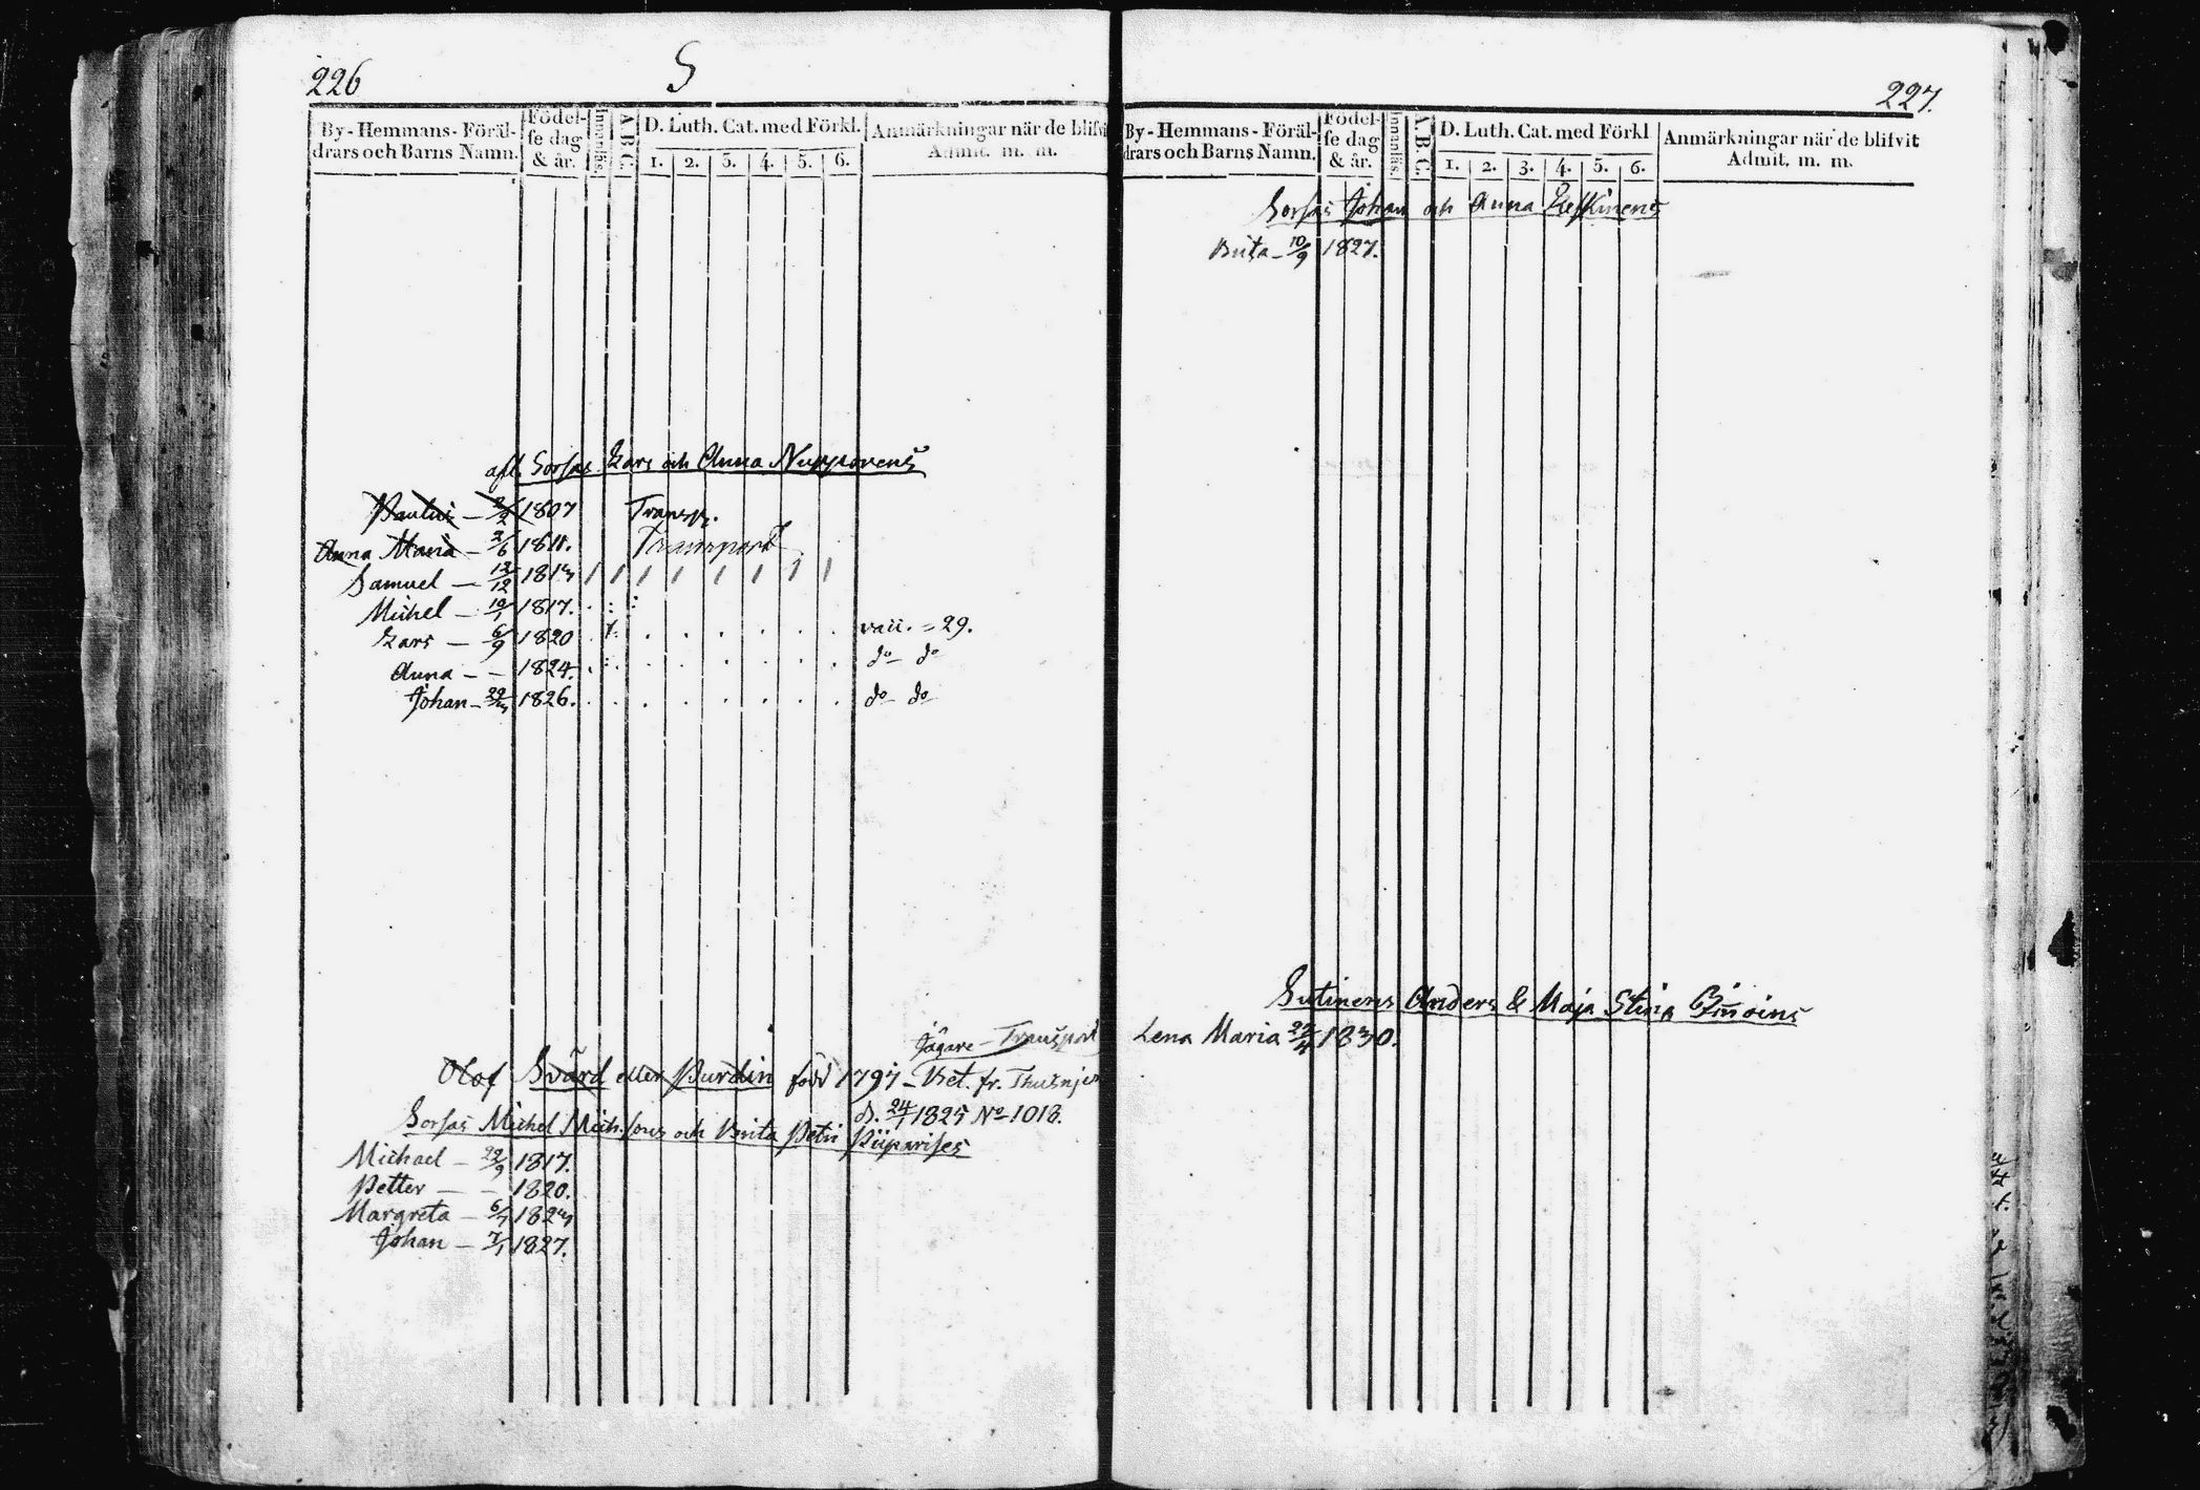 226
S
By-Hemmans-Föräl-
drars och Barns Namn.
Födel-
se dag
& år.
Innanläs.
A.B.C.
D. Luth. Cat. med Förkl.
1. 2. 3. 4. 5. 6.
Anmärkningar när de blifvi
Admit. m. m.
afl. Sorsas Lars och Anna Nupponens
Paulus — 2/2 1807 Transp.
Anna Maria — 2/6 1811. Transport
Samuel — 12/12 1813 / / / / / / / /
Michel — 10/1 1817.
Lars — 6/9 1820 vacc. = 29.
Anna — — 1824. do do
Johan — 1826. do do
Jägare — Transport
Olof Svärd eller Purdin född 1797 — Bet. fr.
d. 24/1 1825 No 1018.
Sorsas Michel Mich.sons och Brita Petri Piiparises
Michael — 22/9 1817.
Petter — — 1820.
Margreta — 1823
Johan — 7/1 1827.
227.
By-Hemmans-Föräl-
drars och Barns Namn.
Födel-
se dag
& år.
Innanläs.
A.B.C.
D. Luth. Cat. med Förkl
1. 2. 3. 4. 5. 6.
Anmärkningar när de blifvit
Admit. m. m.
Sorsas Johan och Anna
Brita — 10/9 1827.
Sutinens Anders & Maja Stina
Lena Maria 22/4 1830.